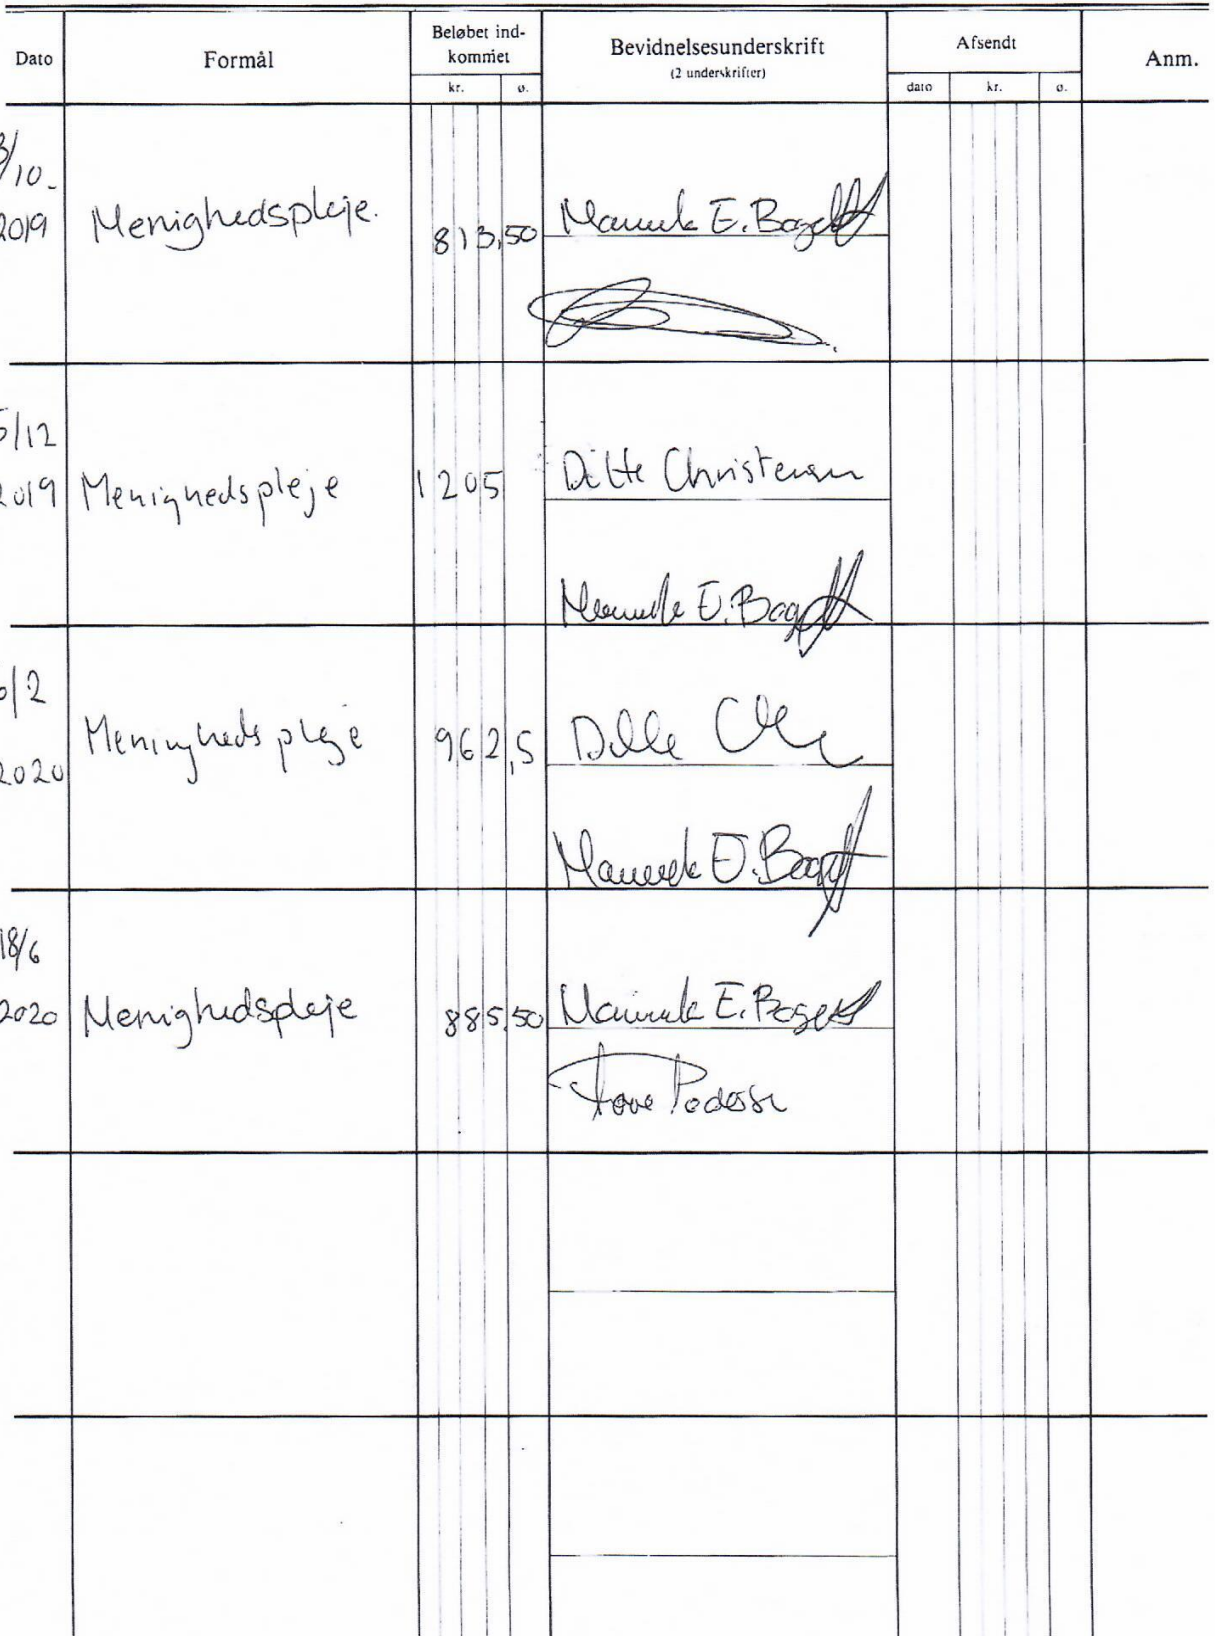 Dato
Formål
Beløbet ind-
kommet
kr. ø.
Bevidnelsesunderskrift
(2 underskrifter)
Afsendt
dato kr. ø.
Anm.
/10-
2019 Menighedspleje. 813,50 E. Bagett
5/12
2019 Menighedspleje 1205 Ditte Christensen
E. Bagett
/2
2020 Menighedspleje 962,5
E. Bagett
18/6
2020 Menighedspleje 885,50 E. Bagett
Tove